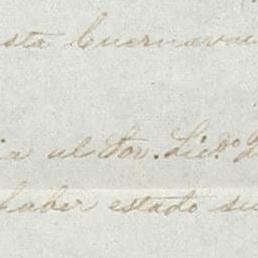 sta Cuernavac
ia al Sor. Licdo.
haber estado su